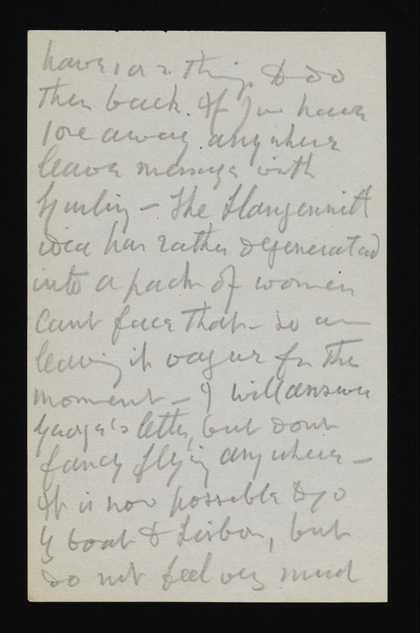 have 1 or 2 things to do
then back. If you have
gone away anywhere
leave message with
The Llangennith
idea has rather degenerated
into a pack of women
Cant face that – so am
leaving it vague for the
moment – I will answer
George's letter, but dont
fancy flying anywhere –
It is now possible to go
by boat to Lisbon, but
do not feel very much